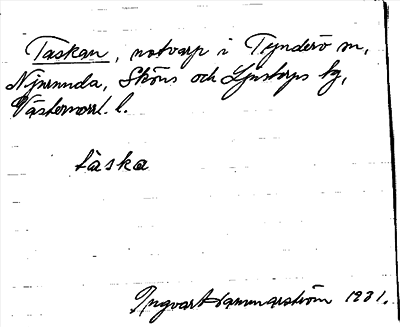 Taskan, notvarp i Tynderö sn,
Njurunda, Sköns och Ljustorps tg,
Västernorrl. l.
taska
Ingvar Hammarström 1931.